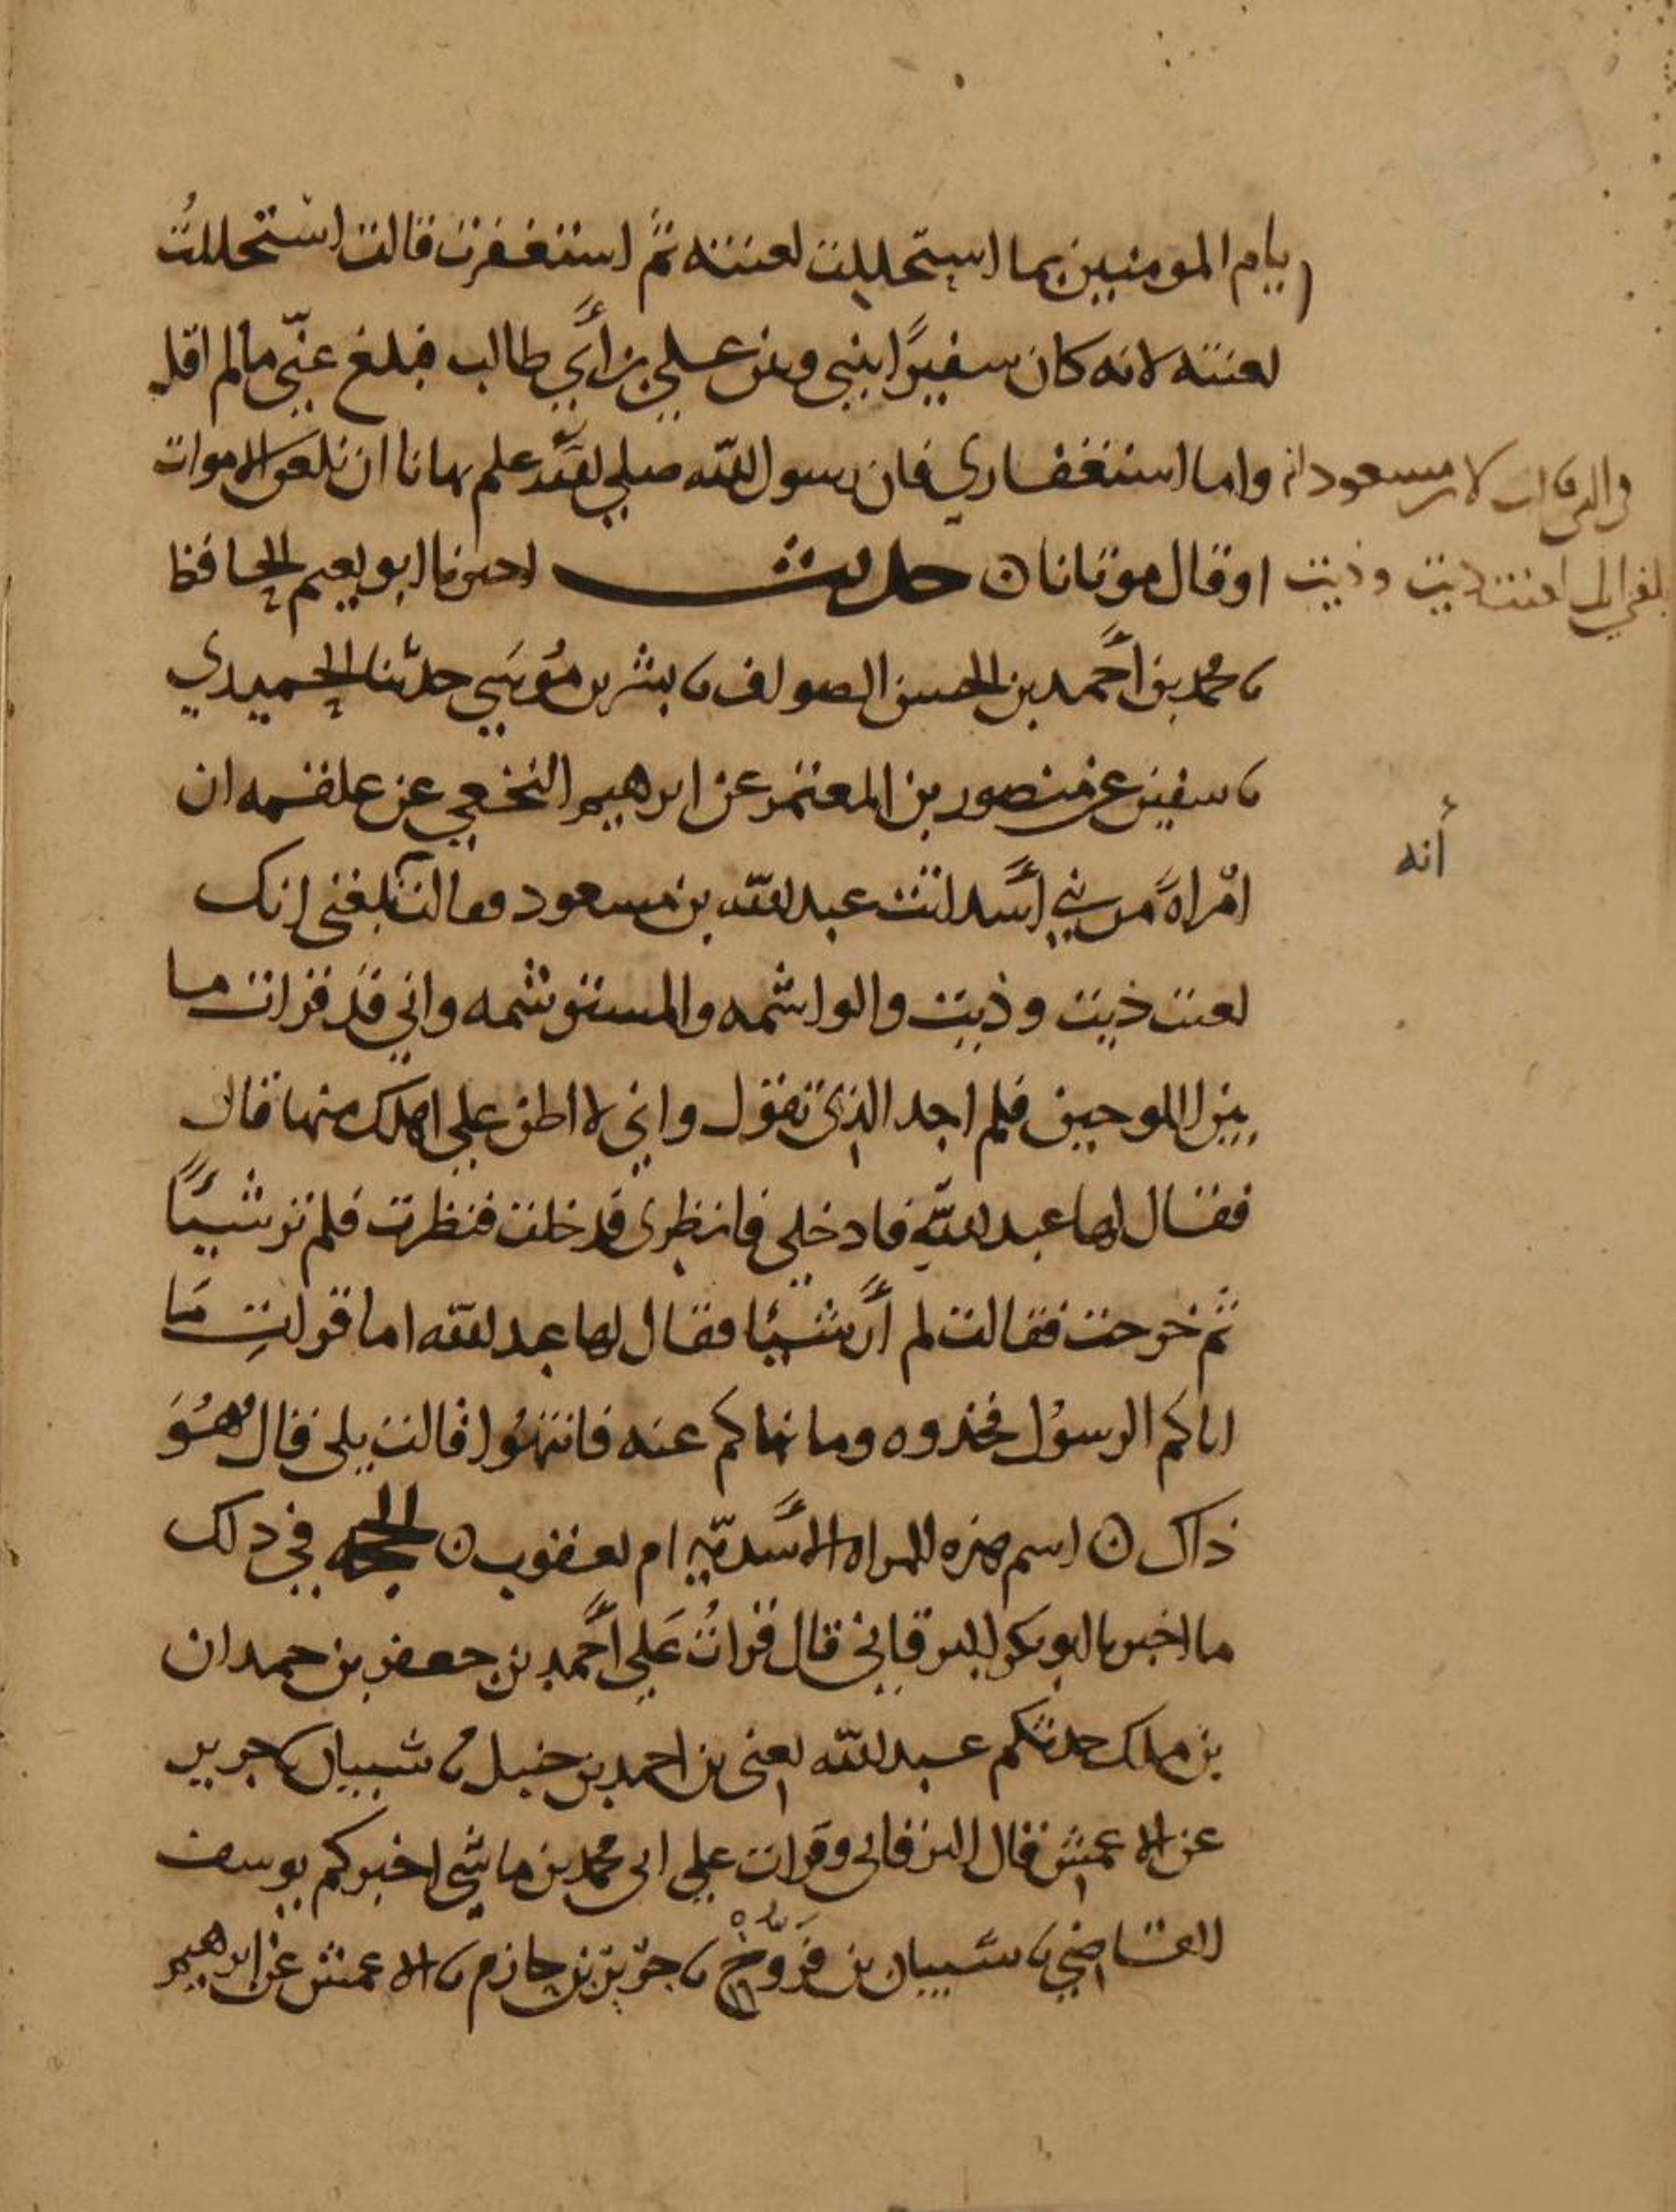 يام المومنين بما استحللت لعنته ثم استغفرت قالت استحللتُ
لعنته لانه كان سفيرًا بيني وبين علي بن أبي طالب فبلغ عنّي مالم اقل
واما استغفاري فان رسول الله صلي الله علم نهانا ان نلعن الاموات
او قال موتانا ن حديث اخبرنا ابو نعيم الحافظ
نا محمد بن أحمد بن الحسن الصواف نا بشر بن مُوسَي حدّثنا الحميدي
نا سفين عن منصور بن المعتمر عن ابرهيم النخعي عن علقمه ان
امْراةً من بني أسد اتت عبد الله بن مسعود فقالت بلغني انك
لعنت ذيت وذيت والواشمه والمستوشمه واني قد قرات ما
بين اللوحين فلم اجد الذي تقول واني لا اظن علي اهلك منها قال
فقال لها عبد الله فادخلي فانظري فدخلت فنظرت فلم تر شيئًا
ثم خرجت فقالت لم أر شيئا فقال لها عبد الله اما قراتِ مَا
اتاكم الرسول فخذوه وما نهاكم عنه فانتهُوا قالت بلي قال فهُوَ
ذاك ن اسم هذه المراه الأسديّه ام يعقوب ن الحجه في ذلك
ما اخبرنا ابو بكر البرقاني قال قراتُ عَلي أحمد بن جعفر بن حمدان
بن ملك حدثكم عبد الله يعني بن احمد بن حنبل نا شيبان نا جرير
عن الاعمش قال البرقاني وقرات علي ابي محمد بن ماسي اخبركم يوسف
القاضي نا شيبان بن فَرُّوخْ نا جرير بن حازم نا الاعمش عن ابرهيم
لابن مسعود انه
بلغني انك لعنت ذيت وذيت
أنه